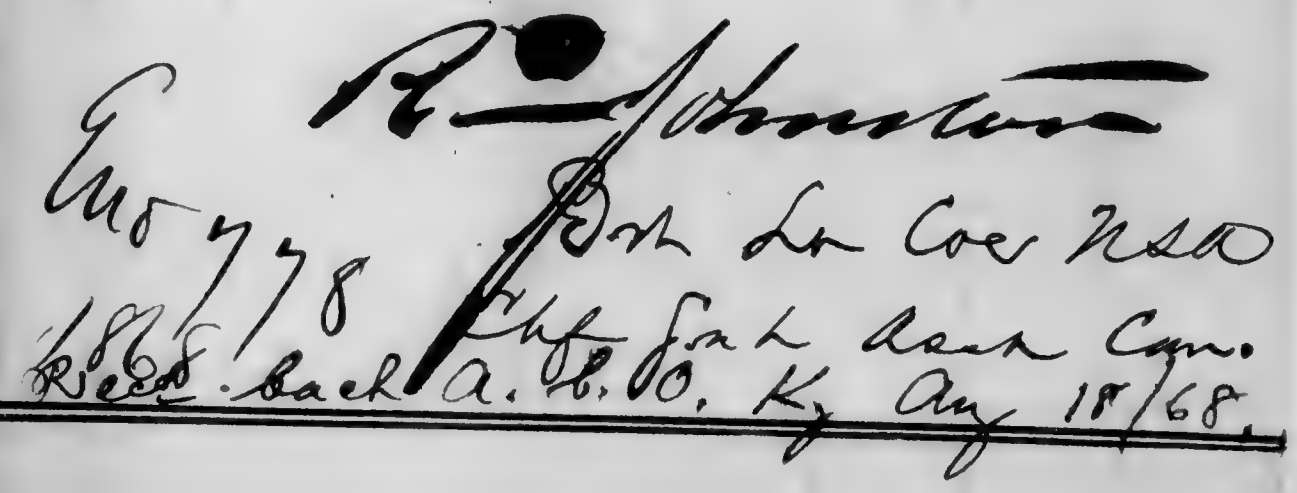 R Johnston
Bvt Ln Col USA
Chf Sub Asst Com.
Endo 778
1868
Recd back A. C. O. Ky Aug 18/68.